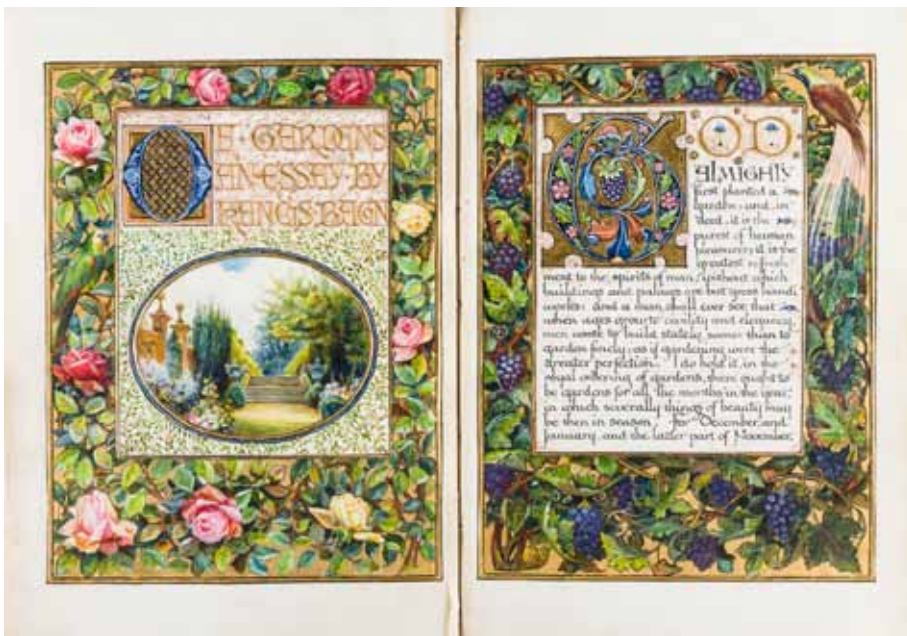 OF · GARDENS
AN · ESSAY · BY
FRANCIS · BACON
GOD
ALMIGHTY
first planted a
garden: and, in
deed, it is the
purest of human
pleasures; it is the
greatest refresh
ment to the spirits of man; without which
buildings and palaces are but gross handi
works: and a man shall ever see that
when ages grow to civility and elegancy,
men come to build stately, sooner than to
garden finely; as if gardening were the
greater perfection. I do hold it, in the
royal ordering of gardens, there ought to
be gardens for all the months in the year,
in which severally things of beauty may
be then in season. For December, and
January, and the latter part of November,